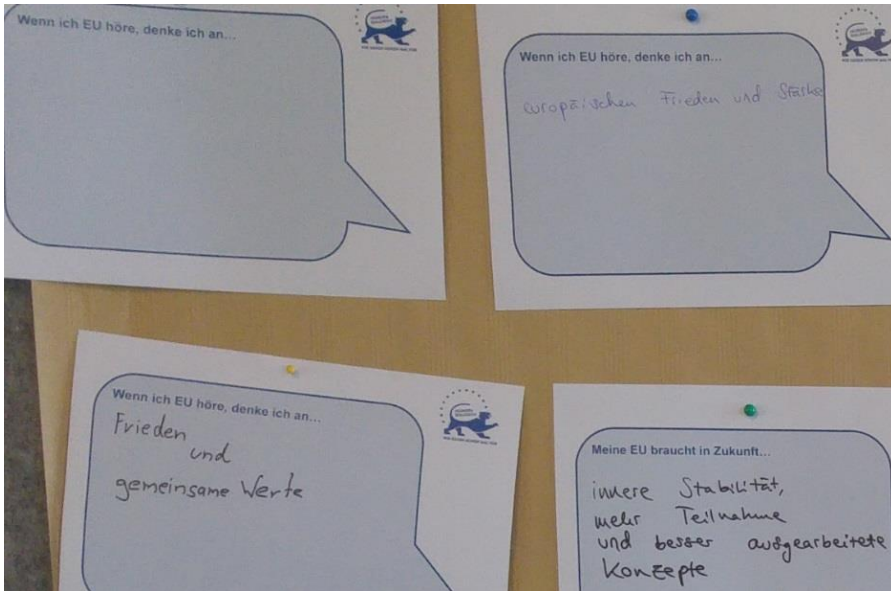 Wenn ich EU höre, denke ich an...
Wenn ich EU höre, denke ich an...
europäischen Frieden und Stärke
Wenn ich EU höre, denke ich an...
Frieden
und
gemeinsame Werte
Meine EU braucht in Zukunft...
innere Stabilität,
mehr Teilnahme
und besser ausgearbeitete
Konzepte